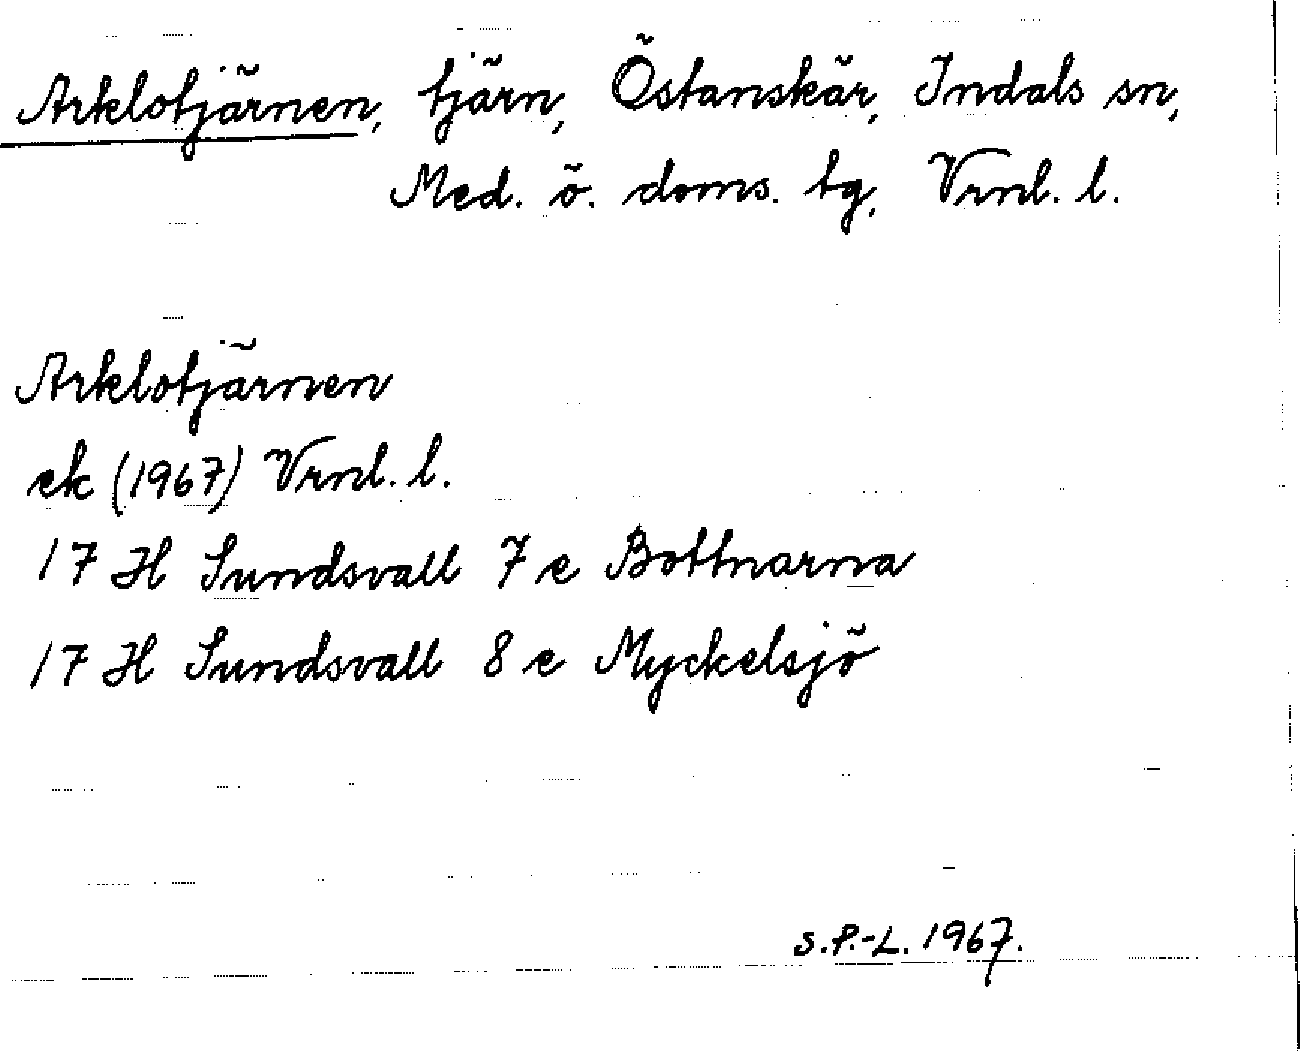 Arklotjärnen, tjärn, Östanskär, Indals sn,
Med. ö. doms. tg, Vrnl. l.
Arklotjärnen
ek (1967) Vrnl. l.
17 H Sundsvall 7 e Bottnarna
17 H Sundsvall 8 e Myckelsjö
S.P.-L. 1967.